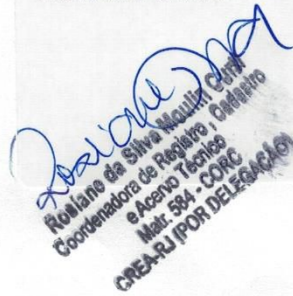 Rosiane da Silva Moulin
Coordenadora de Registro, Cadastro
e Acervo Técnico
Matr. 584 - CORC
CREA-RJ (POR DELEGAÇÃO)